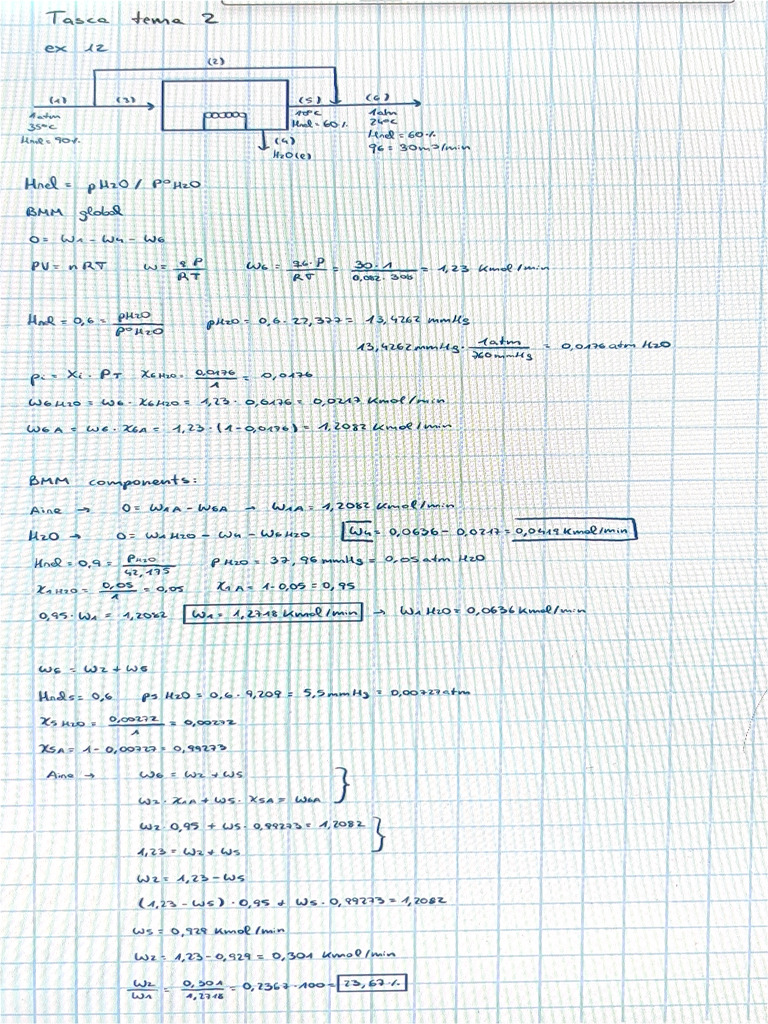 Tasca tema 2
ex 12
(2)
(1) (3) (5) (6)
1atm 10ºC 1atm
35ºC Hrel = 60% 24ºC
Hrel = 90% (4) Hrel = 60%
H2O(l) q6 = 30m³/min
Hrel = pH2O / PºH2O
BMM global
0 = W1 - W4 - W6
PV = nRT W = qP/RT W6 = q6·P/RT = 30·1/0,082·305 = 1,23 Kmol/min
Hrel = 0,6 = pH2O/PºH2O pH2O = 0,6·22,377 = 13,4262 mmHg
13,4262 mmHg · 1atm/760mmHg = 0,0176 atm H2O
pi = Xi · PT X6H2O = 0,0176/1 = 0,0176
W6H2O = W6 · X6H2O = 1,23 · 0,0176 = 0,0217 Kmol/min
W6A = W6 · X6A = 1,23 · (1-0,0176) = 1,2082 Kmol/min
BMM components:
Aire → 0 = W1A - W6A → W1A = 1,2082 Kmol/min
H2O → 0 = W1H2O - W4 - W6H2O W4 = 0,0636 - 0,0217 = 0,0419 Kmol/min
Hrel = 0,9 = PH2O/42,175 pH2O = 37,96 mmHg = 0,05 atm H2O
X1H2O = 0,05/1 = 0,05 X1A = 1-0,05 = 0,95
0,95·W1 = 1,2082 W1 = 1,2718 Kmol/min → W1H2O = 0,0636 Kmol/min
W6 = W2 + W5
Hrel5 = 0,6 p5 H2O = 0,6 · 9,209 = 5,5 mmHg = 0,00727 atm
X5H2O = 0,00272/1 = 0,00272
X5A = 1 - 0,00727 = 0,99273
Aire → W6 = W2 + W5
W2 · X1A + W5 · X5A = W6A
W2 · 0,95 + W5 · 0,99273 = 1,2082
1,23 = W2 + W5
W2 = 1,23 - W5
(1,23 - W5) · 0,95 + W5 · 0,99273 = 1,2082
W5 = 0,929 Kmol/min
W2 = 1,23 - 0,929 = 0,301 Kmol/min
W2/W1 = 0,301/1,2718 = 0,2367·100 = 23,67%